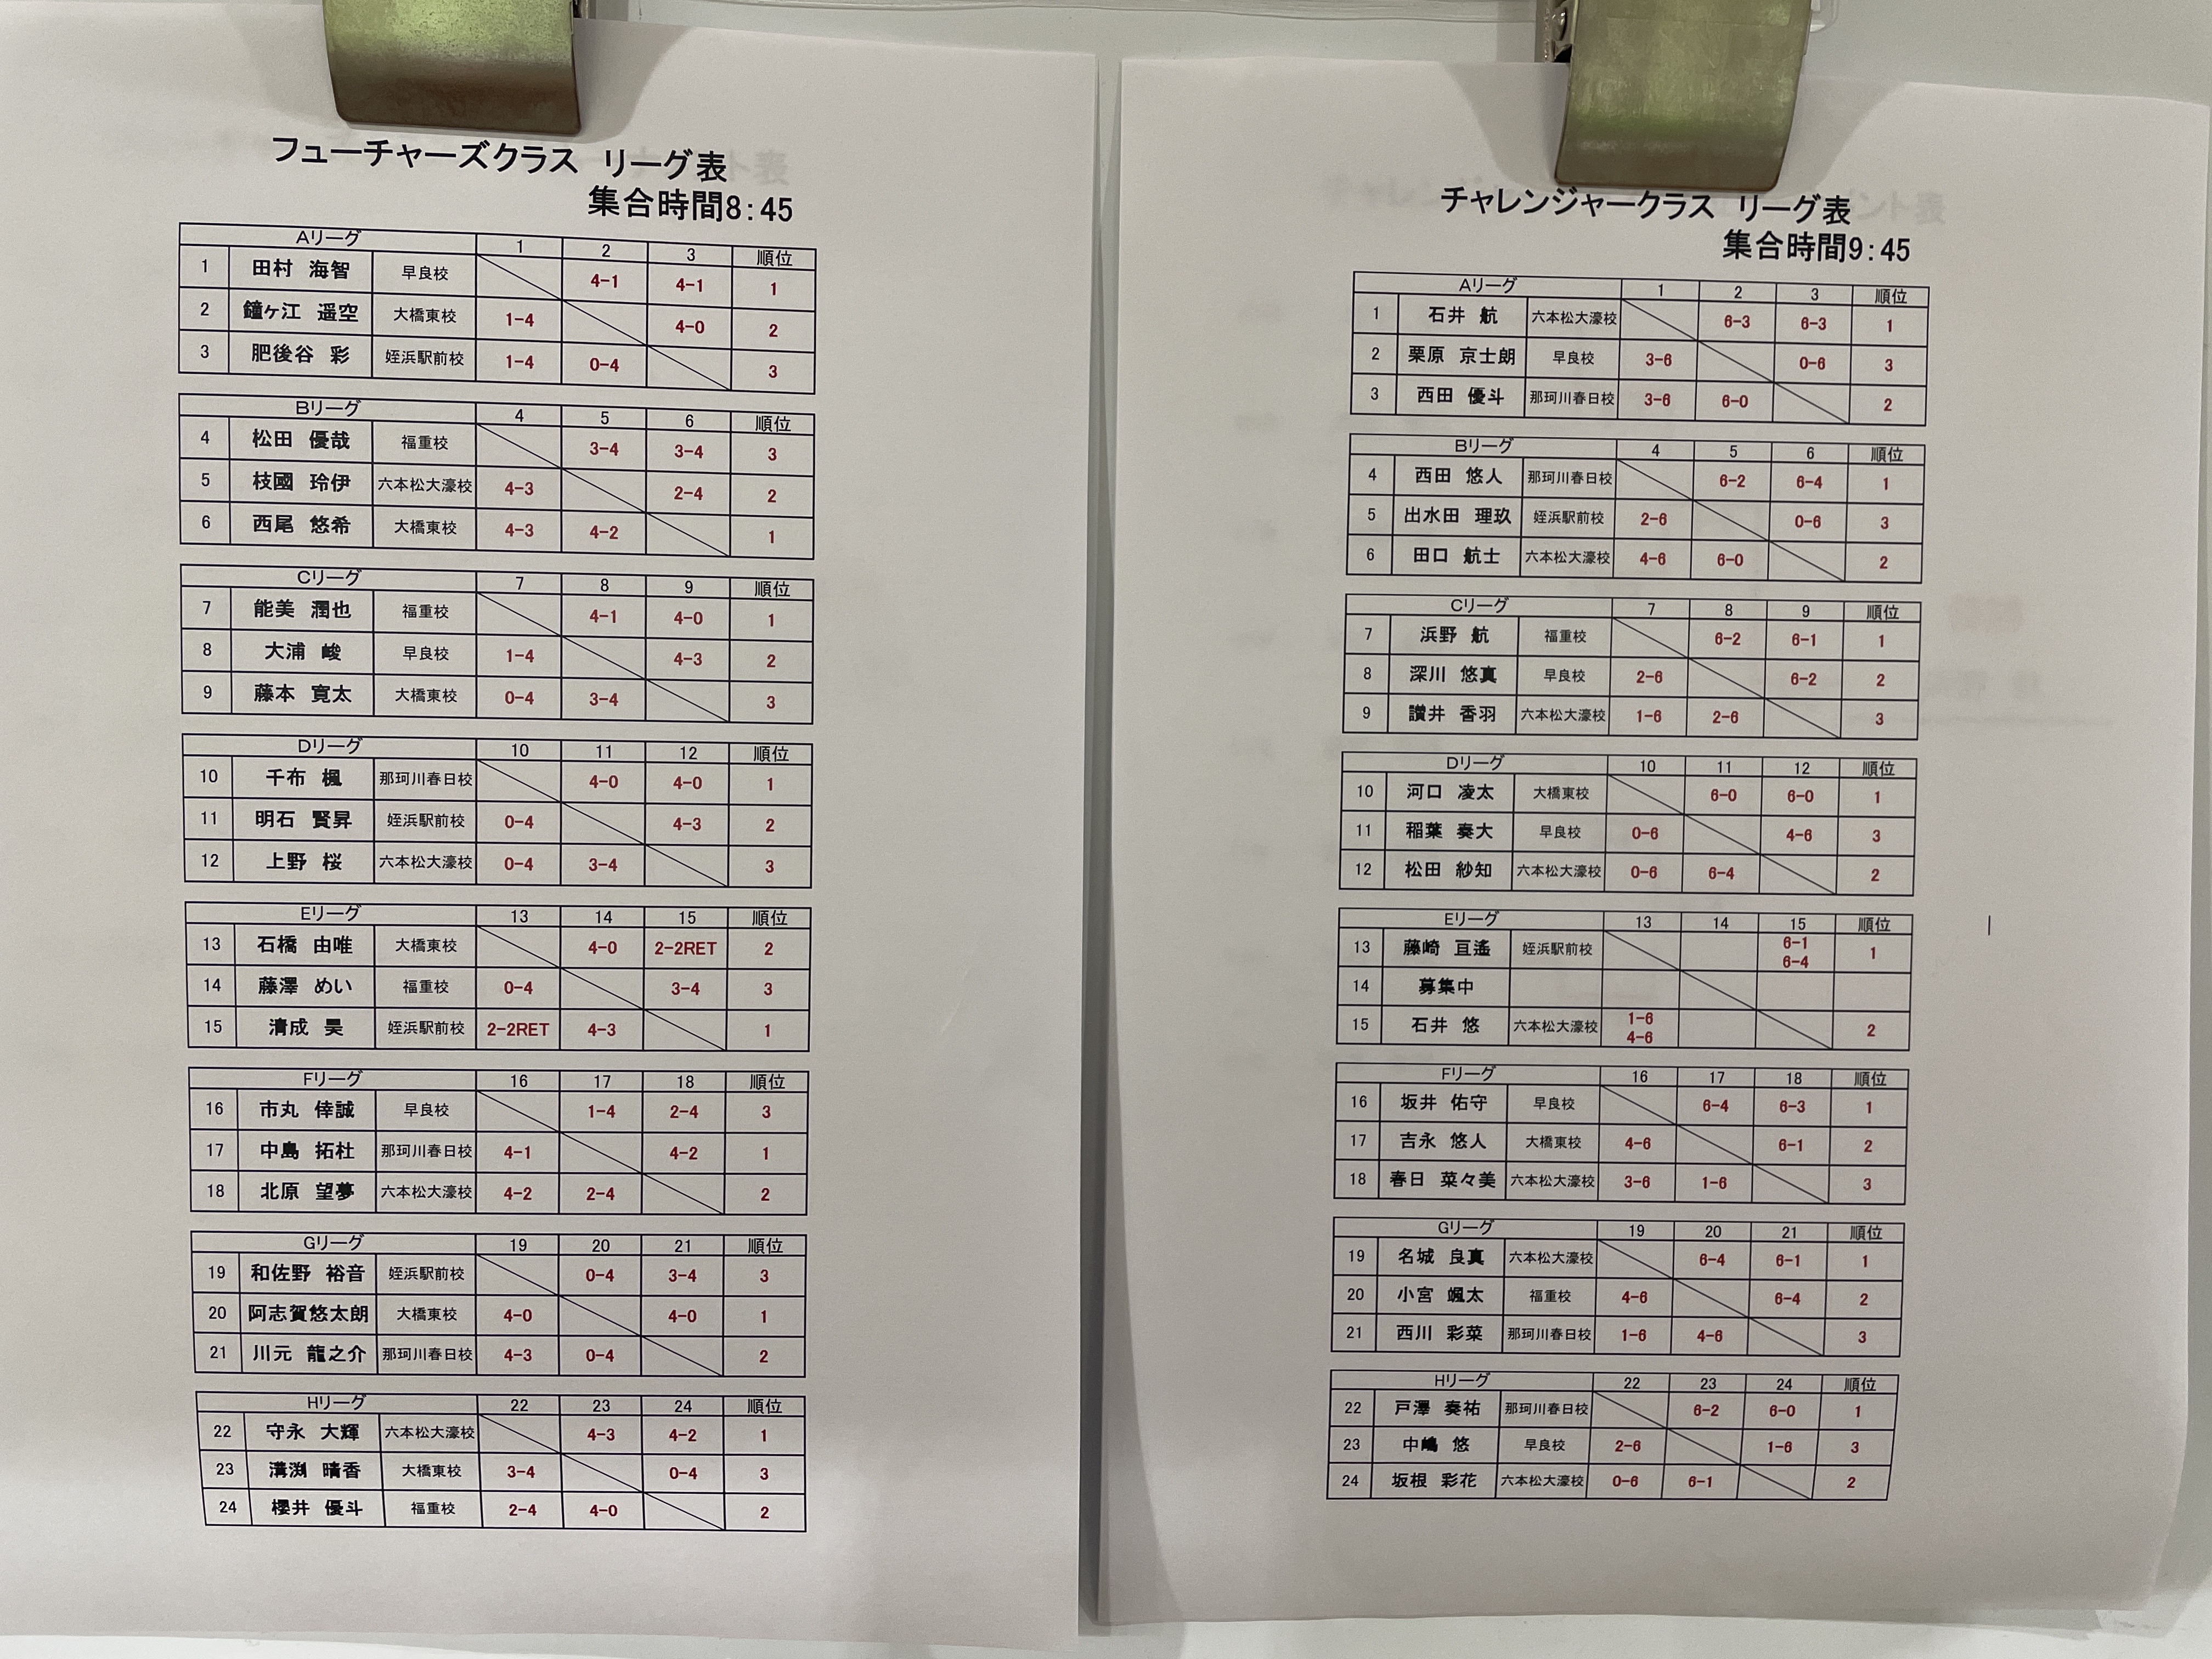 フューチャーズクラス リーグ表
集合時間8:45
Aリーグ 1 2 3 順位
1 田村 海智 早良校 4-1 4-1 1
2 鐘ヶ江 遥空 大橋東校 1-4 4-0 2
3 肥後谷 彩 姪浜駅前校 1-4 0-4 3
Bリーグ 4 5 6 順位
4 松田 優哉 福重校 3-4 3-4 3
5 枝國 玲伊 六本松大濠校 4-3 2-4 2
6 西尾 悠希 大橋東校 4-3 4-2 1
Cリーグ 7 8 9 順位
7 能美 潤也 福重校 4-1 4-0 1
8 大浦 峻 早良校 1-4 4-3 2
9 藤本 寛太 大橋東校 0-4 3-4 3
Dリーグ 10 11 12 順位
10 千布 楓 那珂川春日校 4-0 4-0 1
11 明石 賢昇 姪浜駅前校 0-4 4-3 2
12 上野 桜 六本松大濠校 0-4 3-4 3
Eリーグ 13 14 15 順位
13 石橋 由唯 大橋東校 4-0 2-2RET 2
14 藤澤 めい 福重校 0-4 3-4 3
15 清成 昊 姪浜駅前校 2-2RET 4-3 1
Fリーグ 16 17 18 順位
16 市丸 倖誠 早良校 1-4 2-4 3
17 中島 拓杜 那珂川春日校 4-1 4-2 1
18 北原 望夢 六本松大濠校 4-2 2-4 2
Gリーグ 19 20 21 順位
19 和佐野 裕音 姪浜駅前校 0-4 3-4 3
20 阿志賀悠太朗 大橋東校 4-0 4-0 1
21 川元 龍之介 那珂川春日校 4-3 0-4 2
Hリーグ 22 23 24 順位
22 守永 大輝 六本松大濠校 4-3 4-2 1
23 溝渕 晴香 大橋東校 3-4 0-4 3
24 櫻井 優斗 福重校 2-4 4-0 2
チャレンジャークラス リーグ表
集合時間9:45
Aリーグ 1 2 3 順位
1 石井 航 六本松大濠校 6-3 6-3 1
2 栗原 京士朗 早良校 3-6 0-6 3
3 西田 優斗 那珂川春日校 3-6 6-0 2
Bリーグ 4 5 6 順位
4 西田 悠人 那珂川春日校 6-2 6-4 1
5 出水田 理玖 姪浜駅前校 2-6 0-6 3
6 田口 航士 六本松大濠校 4-6 6-0 2
Cリーグ 7 8 9 順位
7 浜野 航 福重校 6-2 6-1 1
8 深川 悠真 早良校 2-6 6-2 2
9 讃井 香羽 六本松大濠校 1-6 2-6 3
Dリーグ 10 11 12 順位
10 河口 凌太 大橋東校 6-0 6-0 1
11 稲葉 奏大 早良校 0-6 4-6 3
12 松田 紗知 六本松大濠校 0-6 6-4 2
Eリーグ 13 14 15 順位
13 藤崎 亘遙 姪浜駅前校 6-1 6-4 1
14 募集中
15 石井 悠 六本松大濠校 1-6 4-6 2
Fリーグ 16 17 18 順位
16 坂井 佑守 早良校 6-4 6-3 1
17 吉永 悠人 大橋東校 4-6 6-1 2
18 春日 菜々美 六本松大濠校 3-6 1-6 3
Gリーグ 19 20 21 順位
19 名城 良真 六本松大濠校 6-4 6-1 1
20 小宮 颯太 福重校 4-6 6-4 2
21 西川 彩菜 那珂川春日校 1-6 4-6 3
Hリーグ 22 23 24 順位
22 戸澤 奏祐 那珂川春日校 6-2 6-0 1
23 中嶋 悠 早良校 2-6 1-6 3
24 坂根 彩花 六本松大濠校 0-6 6-1 2